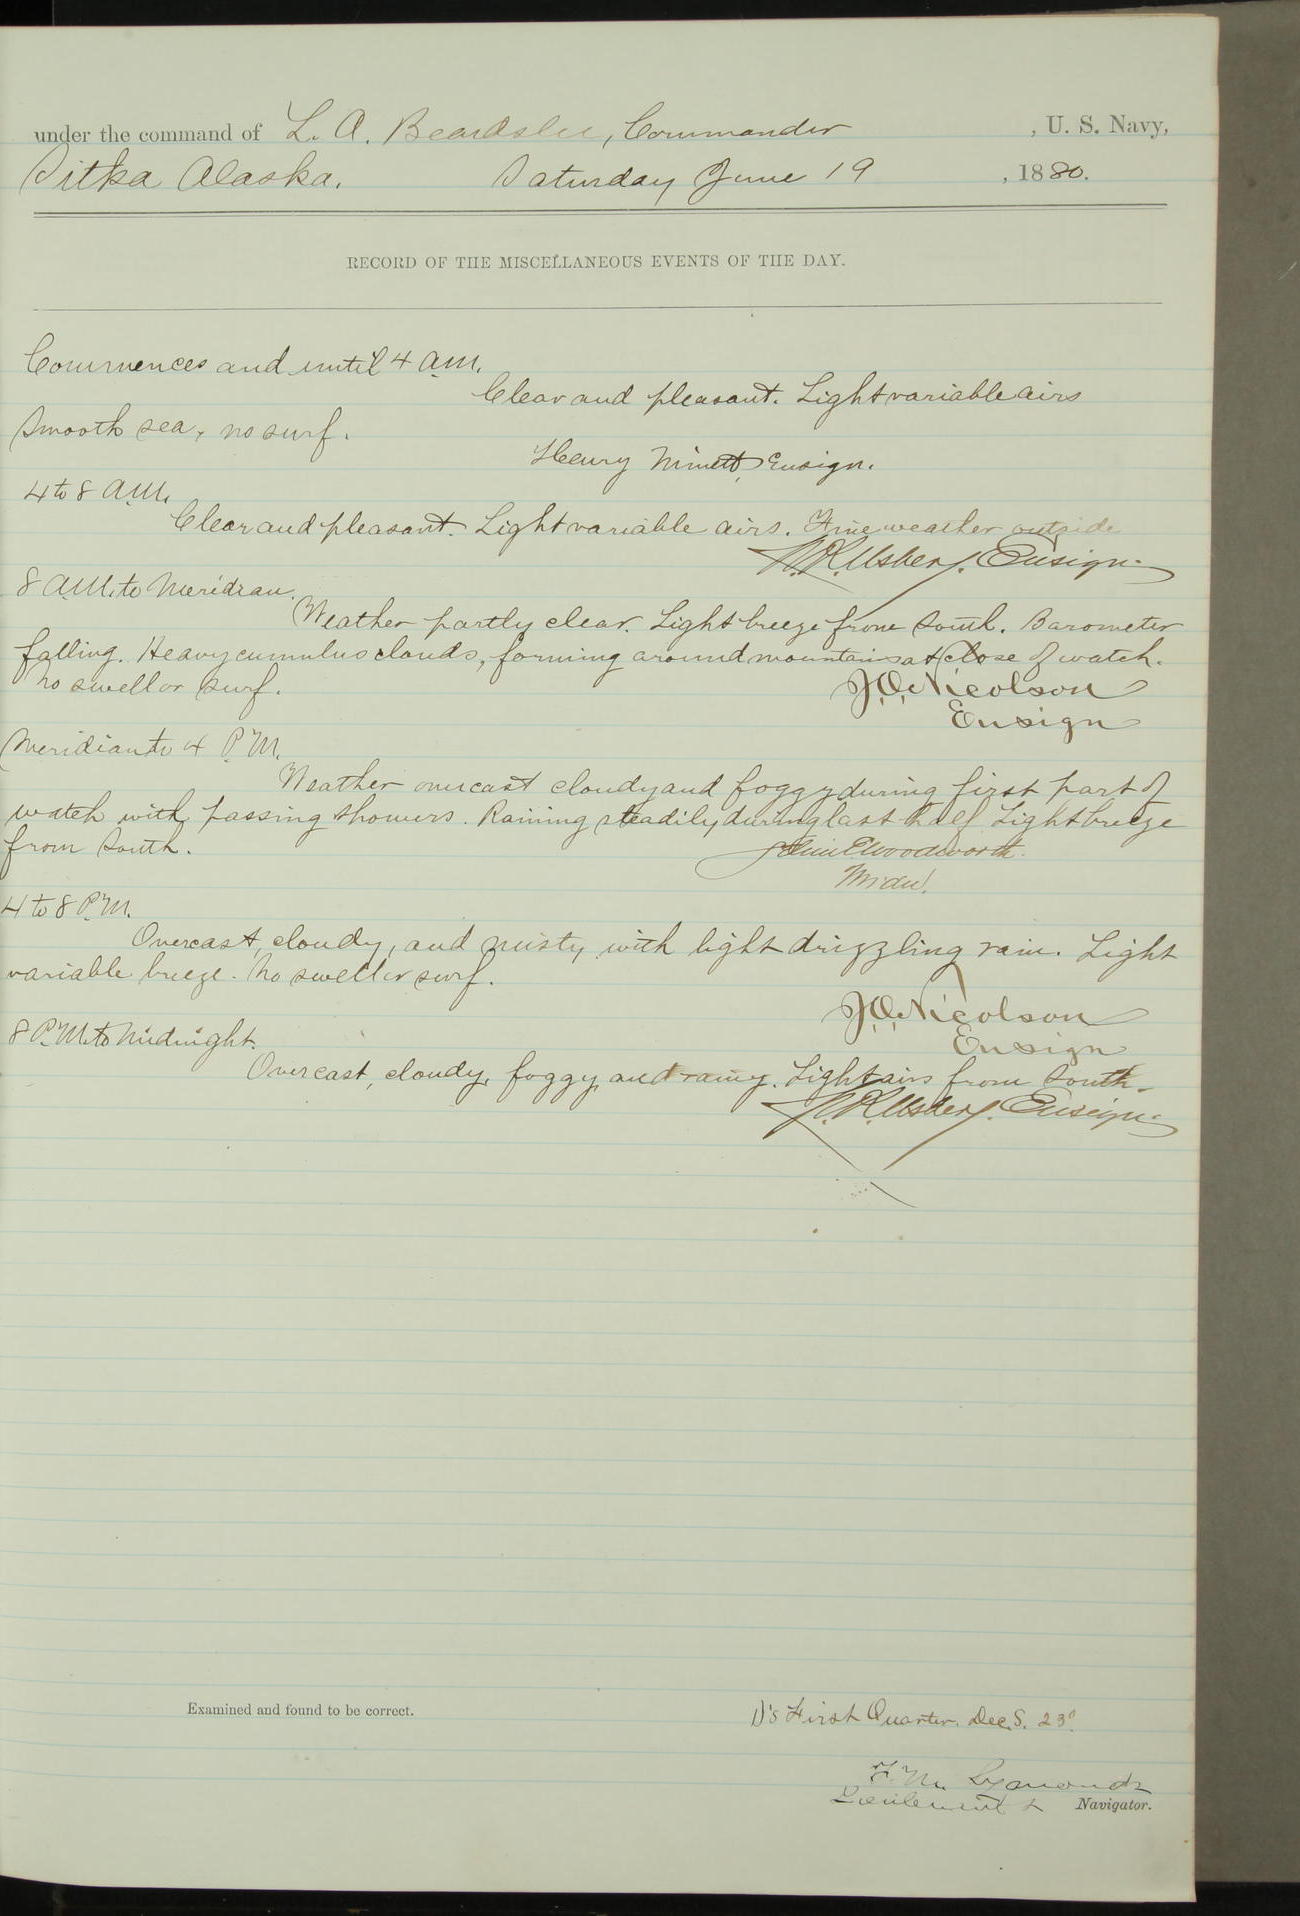 under the command of L. A. Beardslee, Commander , U. S. Navy,
Sitka Alaska. Saturday June 19 , 1880.
RECORD OF THE MISCELLANEOUS EVENTS OF THE DAY.
Commences and until 4 A.M.
Clear and pleasant. Light variable airs
Smooth sea, no surf.
Henry Minett, Ensign.
4 to 8 A.M.
Clear and pleasant. Light variable airs. Fine weather outside
N. R. Usher, Ensign
8 A.M. to Meridian.
Weather partly clear. Light breeze from South. Barometer
falling. Heavy cumulus clouds, forming around mountains at close of watch.
No swell or surf.
J. O. Nicolson
Ensign
Meridian to 4 P.M.
Weather overcast cloudy and foggy during first part of
watch with passing showers. Raining steadily during last half Light breeze
from South.
John E Woodworth.
Midn.
4 to 8 P.M.
Overcast, cloudy, and misty, with light drizzling rain. Light
variable breeze. No swell or surf.
J. O. Nicolson
Ensign
8 P.M. to Midnight.
Overcast, cloudy, foggy and rainy. Light airs from South.
N. R. Usher, Ensign
Examined and found to be correct.
First Quarter. Dec. S. 23°.
F. M. Symonds
Lieutenant & Navigator.